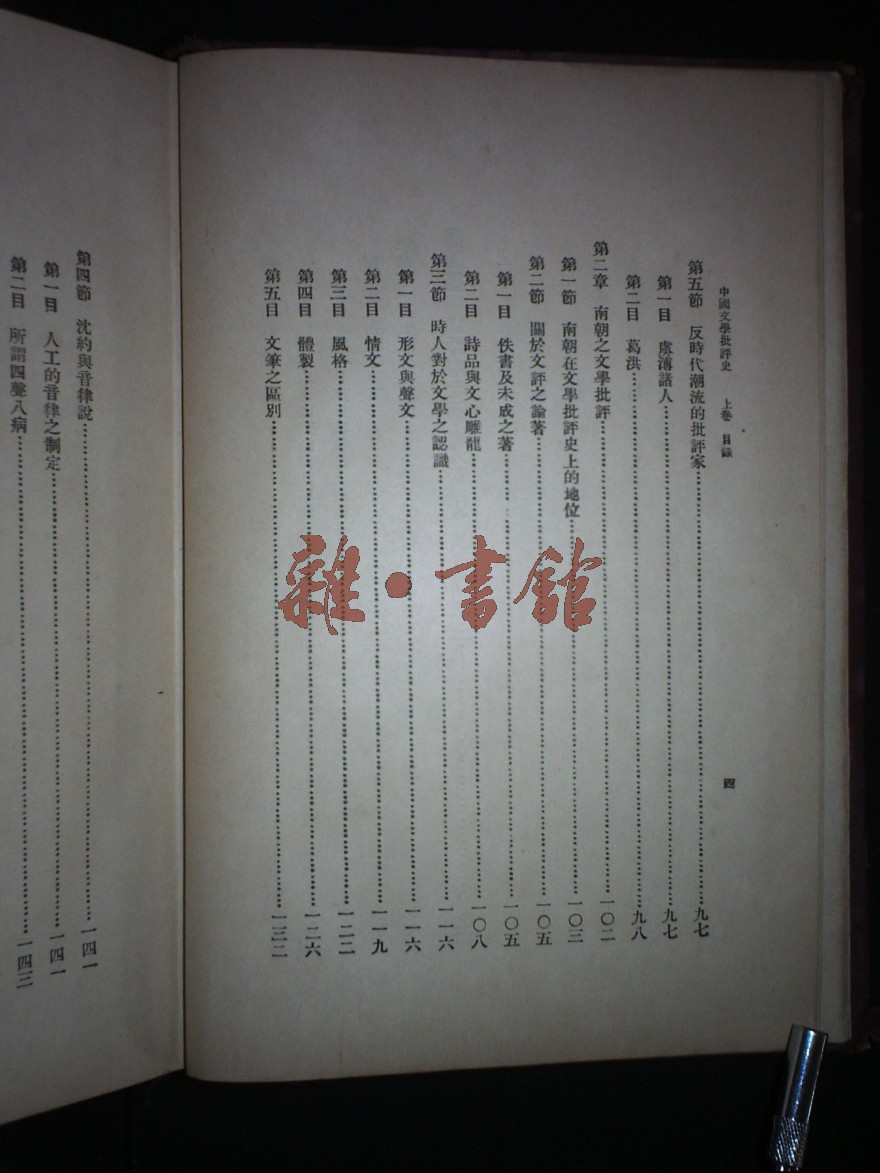 中國文學批評史　上卷　目錄　四
第五節　反時代潮流的批評家……九七
第一目　虞溥諸人……九七
第二目　葛洪……九八
第二章　南朝之文學批評……一〇二
第一節　南朝在文學批評史上的地位……一〇三
第二節　關於文評之論著……一〇五
第一目　佚書及未成之著……一〇五
第二目　詩品與文心雕龍……一〇八
第三節　時人對於文學之認識……一一六
第一目　形文與聲文……一一六
第二目　情文……一一九
第三目　風格……一二二
第四目　體製……一二六
第五目　文筆之區別……一三二
第四節　沈約與音律說……一四一
第一目　人工的音律之制定……一四一
第二目　所謂四聲八病……一四三
雜·書館